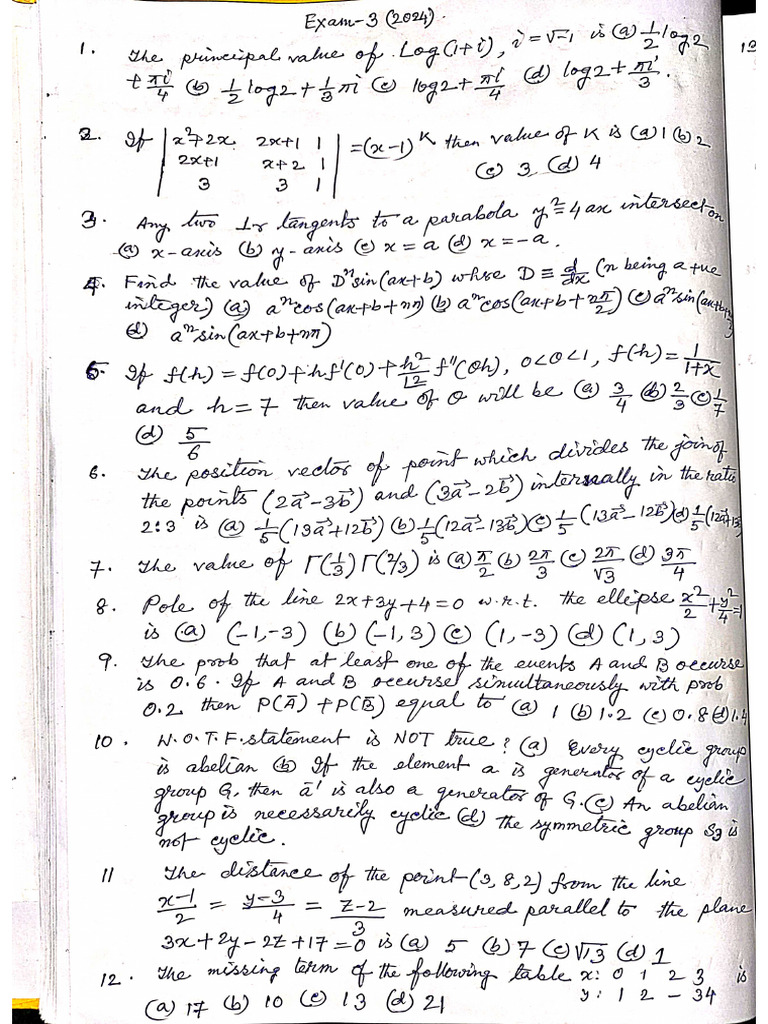 Exam-3 (2024).
1. The principal value of Log(1+i), i=√-1 is (a) 1/2 log2
+ πi/4 (b) 1/2 log2 + 1/3 πi (c) log2 + πi/4 (d) log2 + πi/3.
2. If | x²+2x 2x+1 1 | = (x-1)^K then value of K is (a) 1 (b) 2
| 2x+1 x+2 1 | (c) 3 (d) 4
| 3 3 1 |
3. Any two ⊥r tangents to a parabola y²=4ax intersect on
(a) x-axis (b) y-axis (c) x=a (d) x=-a.
4. Find the value of Dⁿsin(ax+b) whse D ≡ d/dx (n being a +ve
integer) (a) aⁿcos(ax+b+nπ) (b) aⁿcos(ax+b+nπ/2) (c) aⁿsin(ax+b+
(d) aⁿsin(ax+b+nπ)
5. If f(h) = f(0)+hf'(0)+h²/12 f''(θh), 0<θ<1, f(h)=1/1+x
and h=7 then value of θ will be (a) 3/4 (b) 2/3 (c) 1/7
(d) 5/6
6. The position vector of point which divides the join of
the points (2a⃗-3b⃗) and (3a⃗-2b⃗) internally in the ratio
2:3 is (a) 1/5(13a⃗+12b⃗) (b) 1/5(12a⃗-13b⃗) (c) 1/5(13a⃗-12b⃗) (d) 1/5(12a⃗+13b⃗)
7. The value of Γ(1/3)Γ(2/3) is (a) π/2 (b) 2π/3 (c) 2π/√3 (d) 3π/4
8. Pole of the line 2x+3y+4=0 w.r.t. the ellipse x²/2+y²/4=1
is (a) (-1,-3) (b) (-1,3) (c) (1,-3) (d) (1,3)
9. The prob that at least one of the events A and B occurse
is 0.6. If A and B occurse simultaneously with prob
0.2 then P(Ā)+P(B̄) equal to (a) 1 (b) 1.2 (c) 0.8 (d) 1.4
10. W.O.T.F. statement is NOT true? (a) Every cyclic group
is abelian (b) If the element a is generator of a cyclic
group G, then a⁻¹ is also a generator of G. (c) An abelian
group is necessarily cyclic (d) the symmetric group S3 is
not cyclic.
11 The distance of the point (3,8,2) from the line
x-1/2 = y-3/4 = z-2/3 measured parallel to the plane
3x+2y-2z+17=0 is (a) 5 (b) 7 (c) √13 (d) 1
12. The missing term of the following table x: 0 1 2 3 is
(a) 17 (b) 10 (c) 13 (d) 21 y: 1 2 - 34